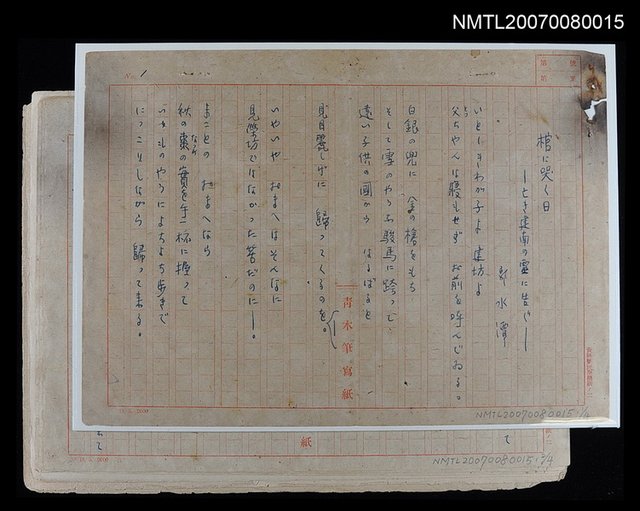 NMTL20070080015
No. 1
棺に哭く日
―亡き建南の霊に告ぐ―
郭水潭
いとしきわが子よ 建坊よ
父ちやんは寝もせず お前を呼んでゐる。
白銀の兜に 金の槍をもち
そして雪のやうな駿馬に跨つて、
遠い子供の国から はるばると
見目麗しげに 歸つてくるものを。
いやいや おまへはそんなに
見榮坊ではなかつた筈だのに―。
まことの おまへなら
秋の棗の實を手一杯に握つて
いつものやうによちよち歩きで
につこりしながら 歸つて来る。
青木筆寫紙
NMTL20070080015 1/4
紙
て
NMTL20070080015 2/4